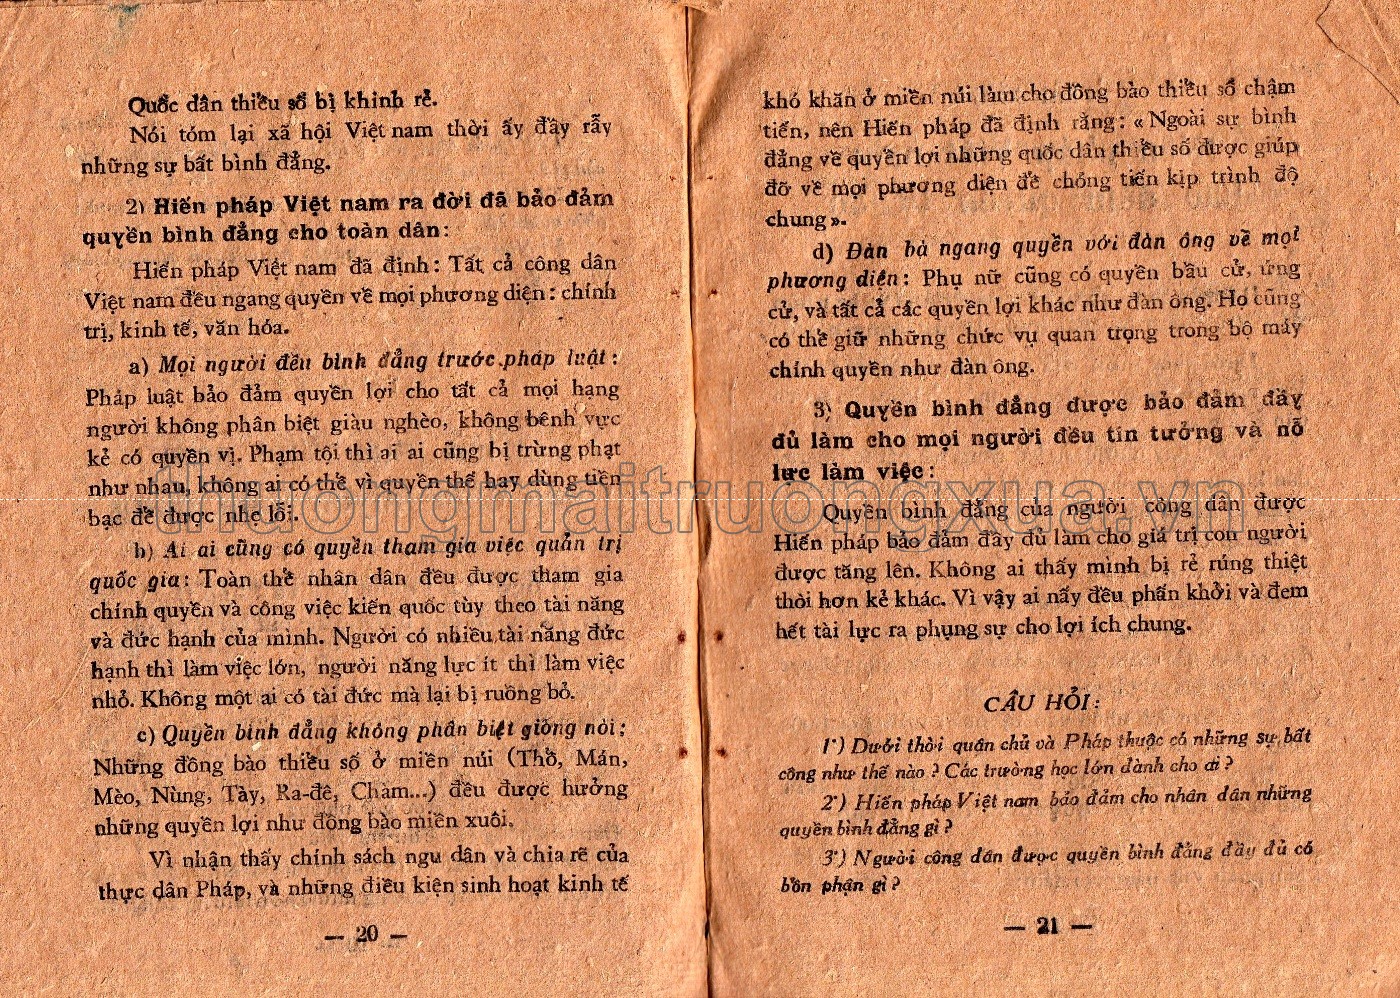 Quốc dân thiểu số bị khinh rẻ.
Nói tóm lại xã hội Việt nam thời ấy đầy rẫy
những sự bất bình đẳng.
2) Hiến pháp Việt nam ra đời đã bảo đảm
quyền bình đẳng cho toàn dân:
Hiến pháp Việt nam đã định: Tất cả công dân
Việt nam đều ngang quyền về mọi phương diện: chính
trị, kinh tế, văn hóa.
a) Mọi người đều bình đẳng trước pháp luật:
Pháp luật bảo đảm quyền lợi cho tất cả mọi hạng
người không phân biệt giàu nghèo, không bênh vực
kẻ có quyền vị. Phạm tội thì ai ai cũng bị trừng phạt
như nhau, không ai có thể vì quyền thế hay dùng tiền
bạc để được nhẹ lỗi.
b) Ai ai cũng có quyền tham gia việc quản trị
quốc gia: Toàn thể nhân dân đều được tham gia
chính quyền và công việc kiến quốc tùy theo tài năng
và đức hạnh của mình. Người có nhiều tài năng đức
hạnh thì làm việc lớn, người năng lực ít thì làm việc
nhỏ. Không một ai có tài đức mà lại bị ruồng bỏ.
c) Quyền bình đẳng không phân biệt giống nòi:
Những đồng bào thiểu số ở miền núi (Thổ, Mán,
Mèo, Nùng, Tày, Ra-đê, Chàm...) đều được hưởng
những quyền lợi như đồng bào miền xuôi.
Vì nhận thấy chính sách ngu dân và chia rẽ của
thực dân Pháp, và những điều kiện sinh hoạt kinh tế
— 20 —
khó khăn ở miền núi làm cho đồng bào thiểu số chậm
tiến, nên Hiến pháp đã định rằng: « Ngoài sự bình
đẳng về quyền lợi những quốc dân thiểu số được giúp
đỡ về mọi phương diện để chóng tiến kịp trình độ
chung ».
d) Đàn bà ngang quyền với đàn ông về mọi
phương diện: Phụ nữ cũng có quyền bầu cử, ứng
cử, và tất cả các quyền lợi khác như đàn ông. Họ cũng
có thể giữ những chức vụ quan trọng trong bộ máy
chính quyền như đàn ông.
3) Quyền bình đẳng được bảo đảm đầy
đủ làm cho mọi người đều tin tưởng và nỗ
lực làm việc:
Quyền bình đẳng của người công dân được
Hiến pháp bảo đảm đầy đủ làm cho giá trị con người
được tăng lên. Không ai thấy mình bị rẻ rúng thiệt
thòi hơn kẻ khác. Vì vậy ai nấy đều phấn khởi và đem
hết tài lực ra phụng sự cho lợi ích chung.
CÂU HỎI:
1°) Dưới thời quân chủ và Pháp thuộc có những sự bất
công như thế nào ? Các trường học lớn dành cho ai ?
2°) Hiến pháp Việt nam bảo đảm cho nhân dân những
quyền bình đẳng gì ?
3°) Người công dân được quyền bình đẳng đầy đủ có
bổn phận gì ?
— 21 —
thuongmaitruongxua.vn